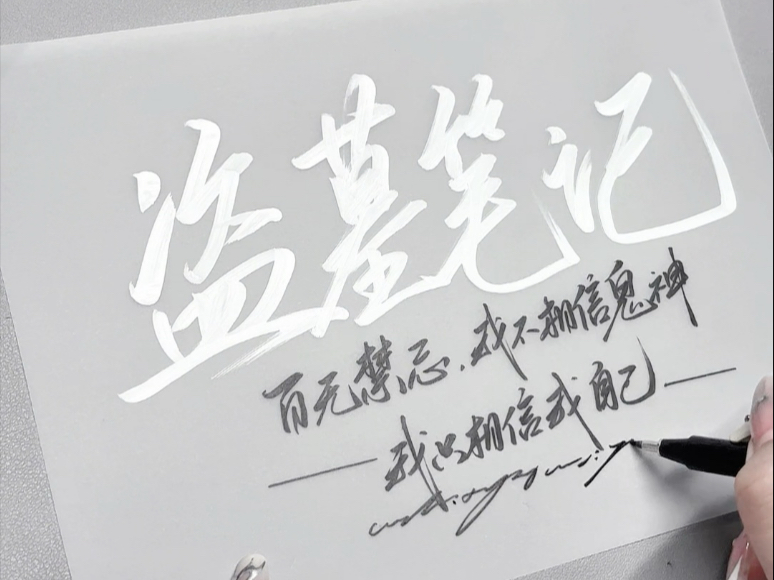 盗墓笔记
百无禁忌,我不相信鬼神
——我只相信我自己——